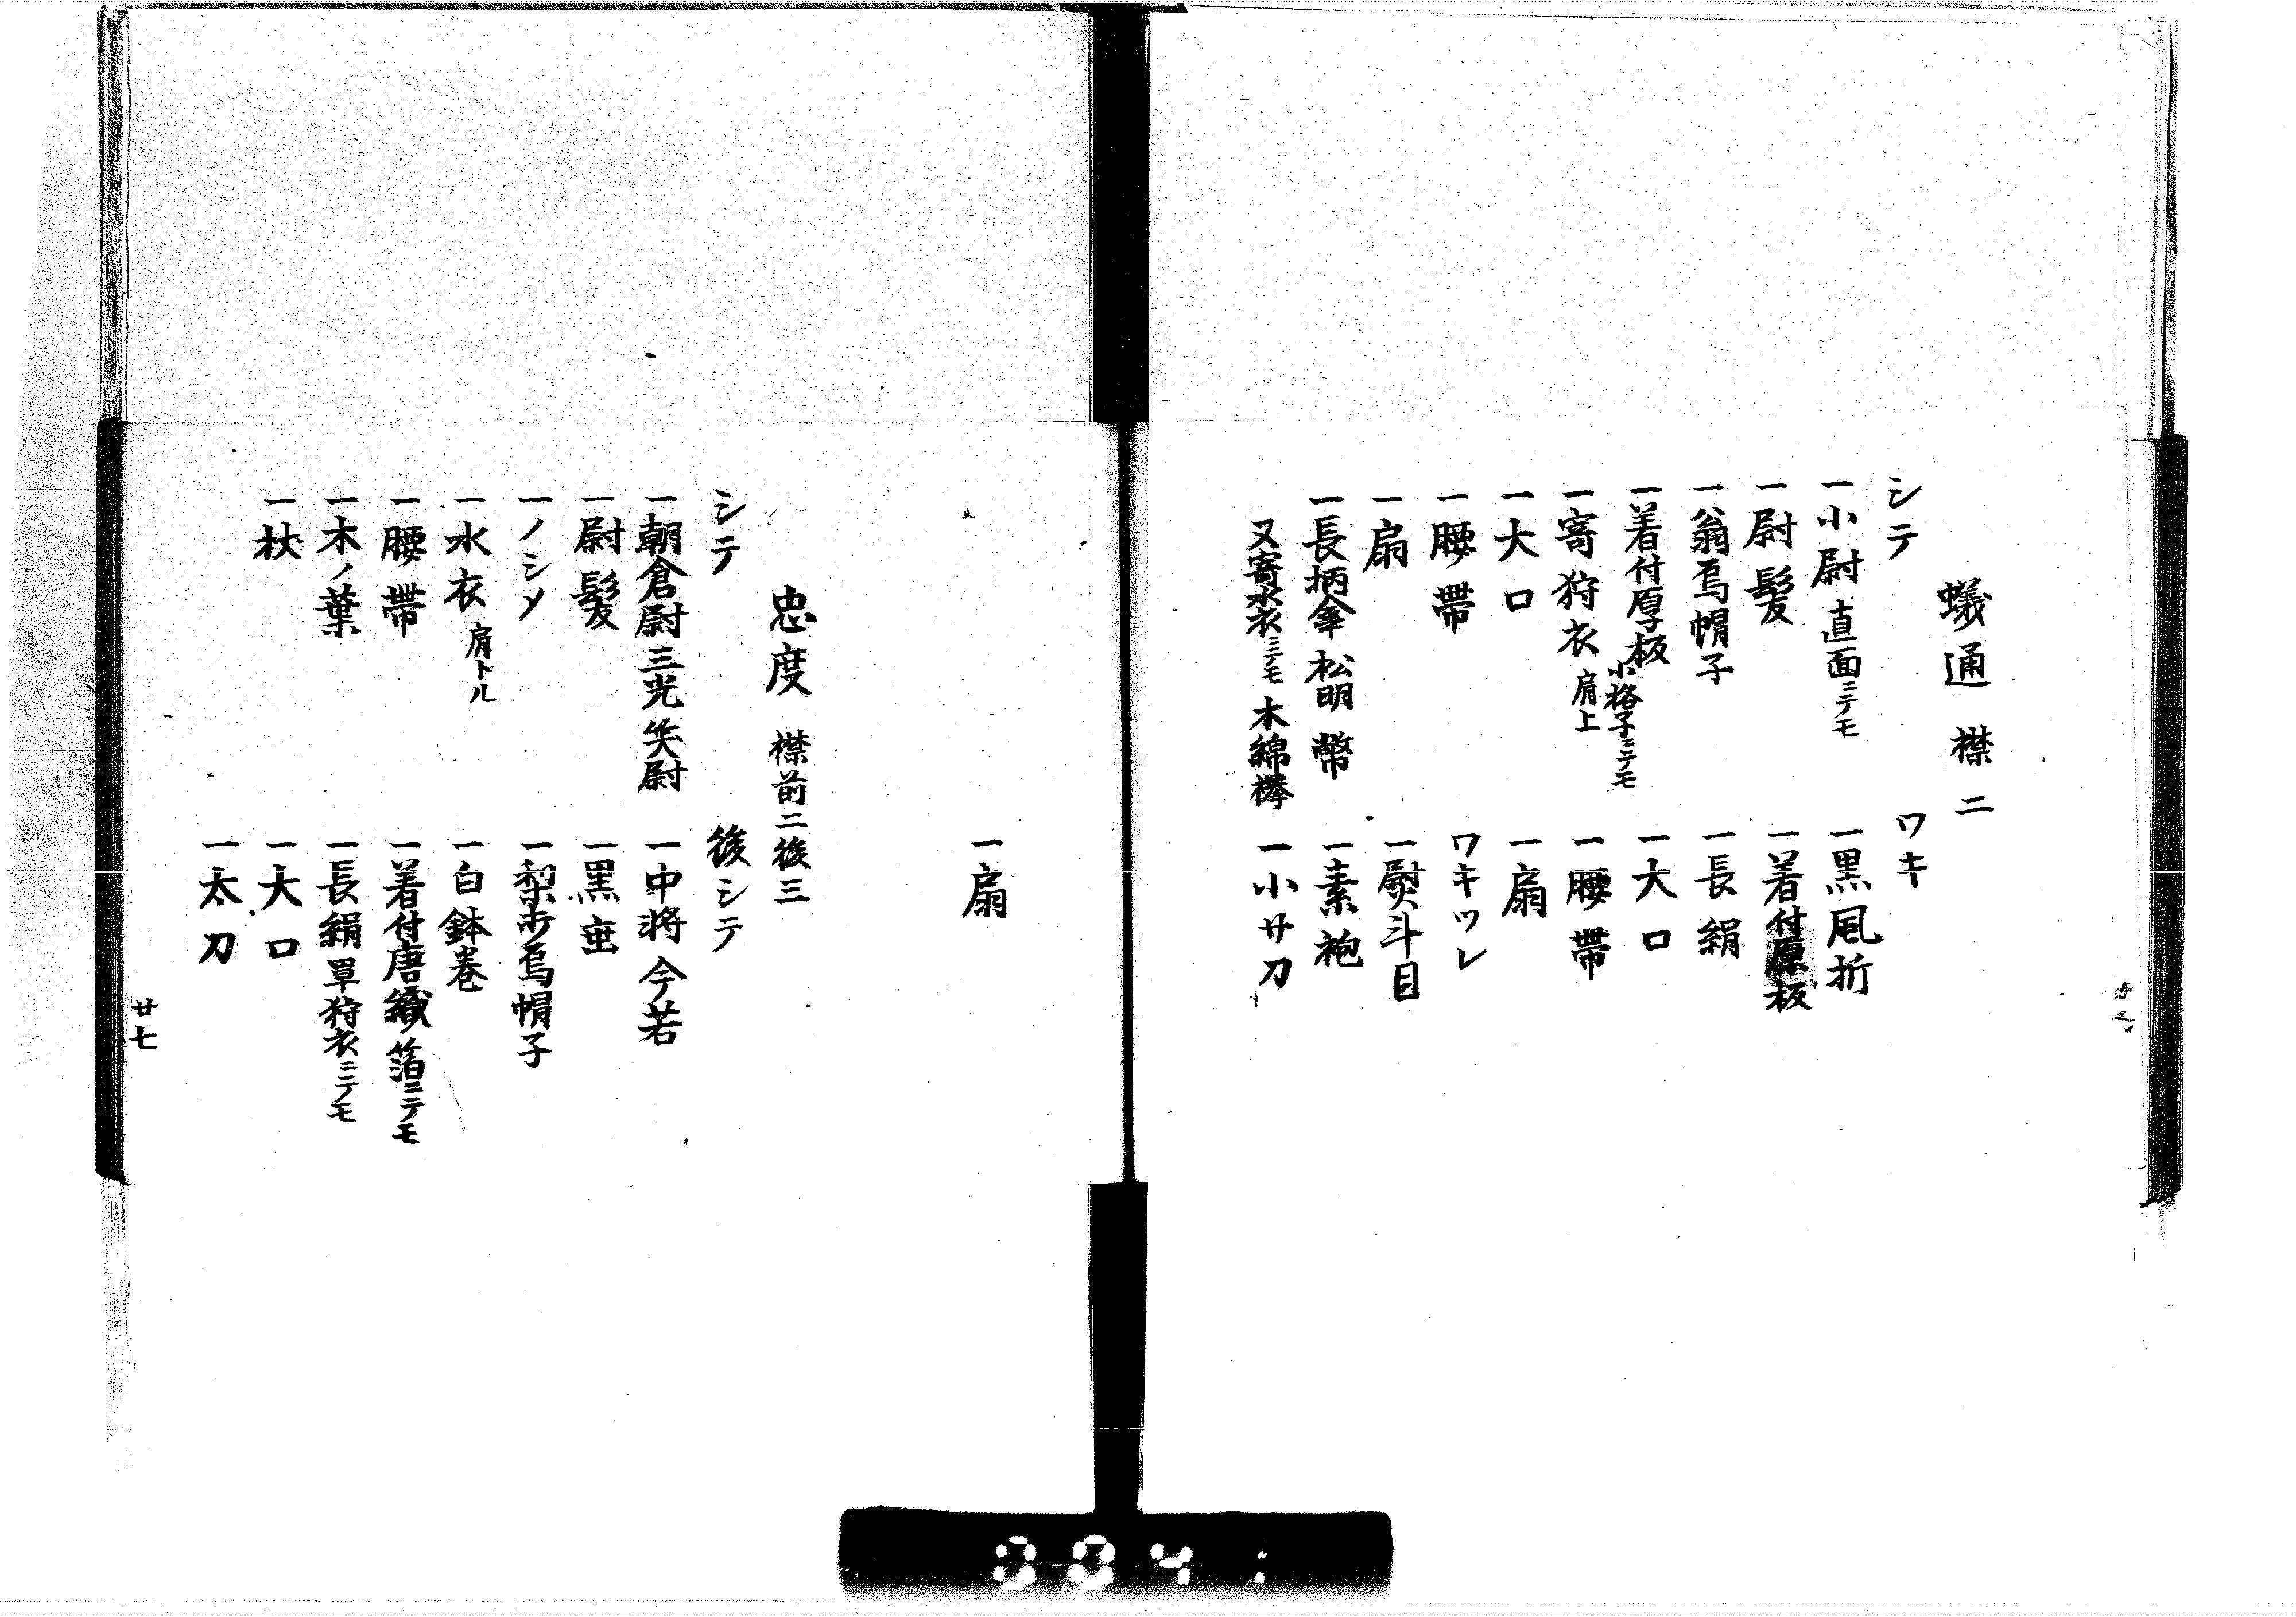 蟻通 襟二
シテ
一小尉 直面ニテモ
一尉髪
一翁烏帽子
一着付厚板 小格子ニテモ
一寄狩衣 肩上
一大口
一腰帯
一扇
一長柄傘 松明 幣
又寄水衣ニテモ 木綿襷
ワキ
一黒風折
一着付厚板
一長絹
一大口
一腰帯
一扇
ワキツレ
一熨斗目
一素袍
一小サ刀
一扇
忠度 襟前二後三
シテ
一朝倉尉 三光 笑尉
一尉髪
一ノシメ
一水衣 肩トル
一腰帯
一木ノ葉
一杖
後シテ
一中将 今若
一黒垂
一梨打烏帽子
一白鉢巻
一着付唐織 箔ニテモ
一長絹 単狩衣ニテモ
一大口
一太刀
廿七